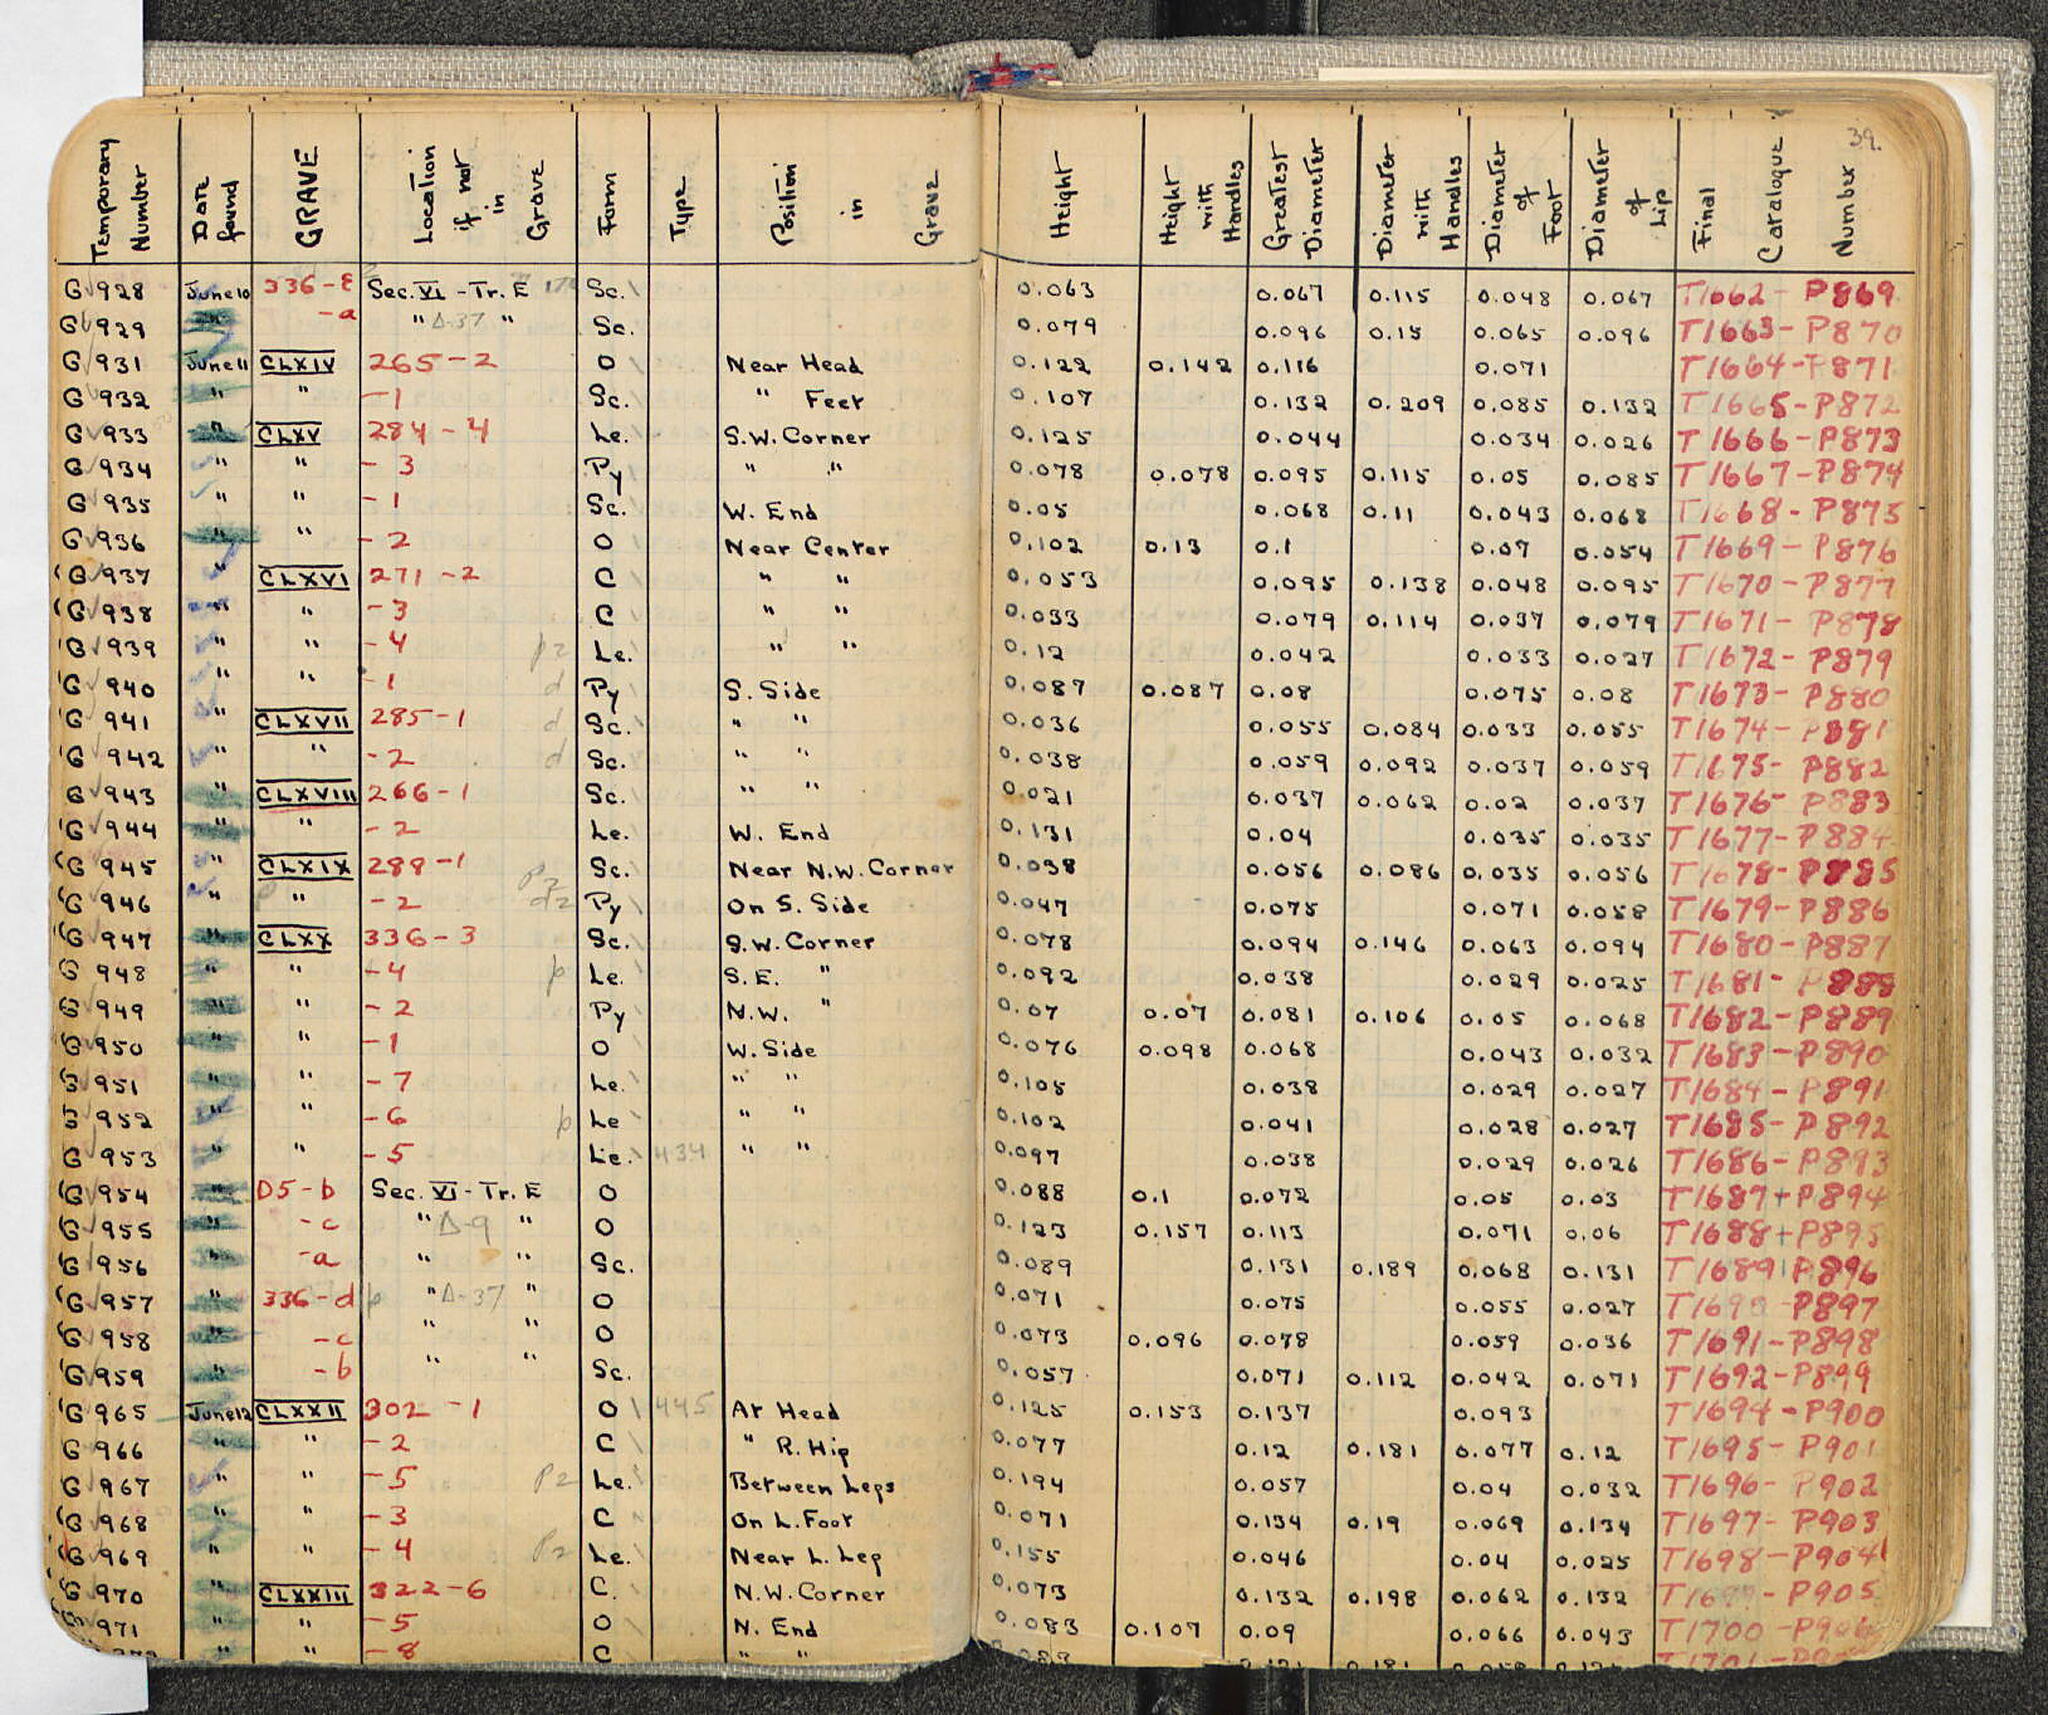 39.
Temporary Number Date found GRAVE Location if not in Grave Form Type Position in Grave Height Height with Handles Greatest Diameter Diameter with Handles Diameter of Foot Diameter of Lip Final Catalogue Number
G 928 June 10 336-E Sec. VI - Tr. E Sc. 0.063 0.067 0.115 0.048 0.067 T1662 - P869
G 929 " -a " Δ-37 " Sc. 0.079 0.096 0.15 0.065 0.096 T1663 - P870
G 931 June 11 CLXIV 265-2 O Near Head 0.122 0.142 0.116 0.071 T1664 - P871
G 932 " " -1 Sc. " Feet 0.107 0.132 0.209 0.085 0.132 T1665 - P872
G 933 " CLXV 284-4 Le. S.W. Corner 0.125 0.044 0.034 0.026 T1666 - P873
G 934 " " -3 Py " " 0.078 0.078 0.095 0.115 0.05 0.085 T1667 - P874
G 935 " " -1 Sc. W. End 0.05 0.068 0.11 0.043 0.068 T1668 - P875
G 936 " " -2 O Near Center 0.102 0.13 0.1 0.07 0.054 T1669 - P876
G 937 " CLXVI 271-2 C " " 0.053 0.095 0.138 0.048 0.095 T1670 - P877
G 938 " " -3 C " " 0.033 0.079 0.114 0.037 0.079 T1671 - P878
G 939 " " -4 p2 Le. " " 0.12 0.042 0.033 0.027 T1672 - P879
G 940 " " -1 d Py S. Side 0.087 0.087 0.08 0.075 0.08 T1673 - P880
G 941 " CLXVII 285-1 d Sc. " " 0.036 0.055 0.084 0.033 0.055 T1674 - P881
G 942 " " -2 d Sc. " " 0.038 0.059 0.092 0.037 0.059 T1675 - P882
G 943 " CLXVIII 266-1 Sc. " " 0.021 0.037 0.062 0.02 0.037 T1676 - P883
G 944 " " -2 Le. W. End 0.131 0.04 0.035 0.035 T1677 - P884
G 945 " CLXIX 288-1 Sc. Near N.W. Corner 0.038 0.056 0.086 0.035 0.056 T1678 - P885
G 946 " " -2 d2 Py On S. Side 0.047 0.075 0.071 0.058 T1679 - P886
G 947 " CLXX 336-3 Sc. S.W. Corner 0.078 0.094 0.146 0.063 0.094 T1680 - P887
G 948 " " -4 p Le. S.E. " 0.092 0.038 0.029 0.025 T1681 - P888
G 949 " " -2 Py N.W. " 0.07 0.07 0.081 0.106 0.05 0.068 T1682 - P889
G 950 " " -1 O W. Side 0.076 0.098 0.068 0.043 0.032 T1683 - P890
G 951 " " -7 Le. " " 0.105 0.038 0.029 0.027 T1684 - P891
G 952 " " -6 p Le " " 0.102 0.041 0.028 0.027 T1685 - P892
G 953 " " -5 Le. 434 " " 0.097 0.038 0.029 0.026 T1686 - P893
G 954 " D5-b Sec. VI - Tr. E O 0.088 0.1 0.072 0.05 0.03 T1687 + P894
G 955 " -c " Δ-9 " O 0.123 0.157 0.113 0.071 0.06 T1688 + P895
G 956 -a " " Sc. 0.089 0.131 0.189 0.068 0.131 T1689 P896
G 957 " 336-d p " Δ-37 " O 0.071 0.075 0.055 0.027 T1690 - P897
G 958 " -c " " O 0.073 0.096 0.078 0.059 0.036 T1691 - P898
G 959 " -b " " Sc. 0.057 0.071 0.112 0.042 0.071 T1692 - P899
G 965 June 12 CLXXII 302-1 O 445 At Head 0.125 0.153 0.137 0.093 T1694 - P900
G 966 " " -2 C " R. Hip 0.077 0.12 0.181 0.077 0.12 T1695 - P901
G 967 " " -5 P2 Le. Between Legs 0.194 0.057 0.04 0.032 T1696 - P902
G 968 " " -3 C On L. Foot 0.071 0.134 0.19 0.069 0.134 T1697 - P903
G 969 " " -4 P2 Le. Near L. Leg 0.155 0.046 0.04 0.025 T1698 - P904
G 970 " CLXXIII 322-6 C. N.W. Corner 0.073 0.132 0.198 0.062 0.132 P905
971 " " -5 O N. End 0.083 0.107 0.09 0.066 0.043 T1700 - P906
" " -8 C " " 0.181 T1701